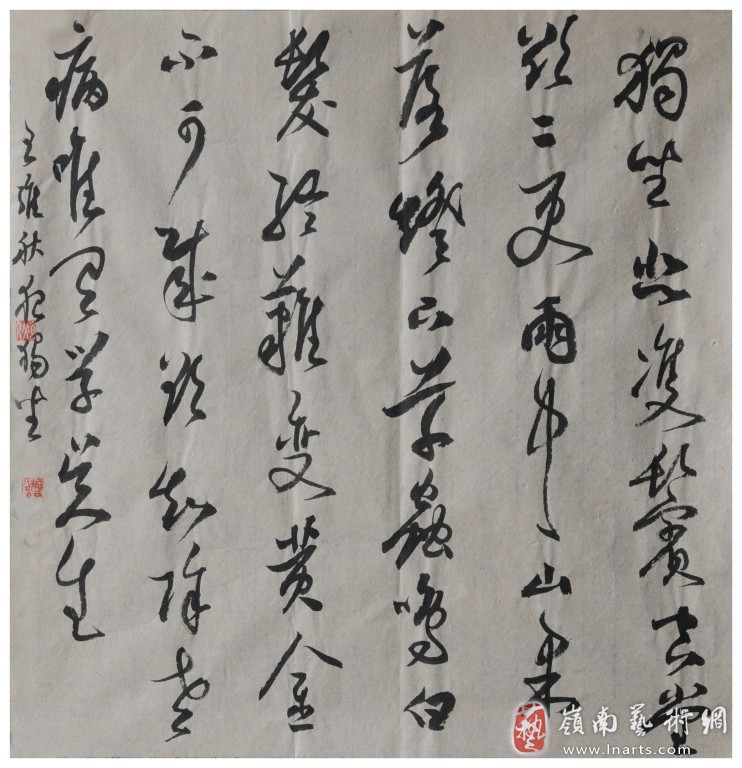 獨坐悲雙鬢空堂
欲二更雨中山果
落燈下草蟲鳴白
髮終難變黃金
不可成欲知除老
病唯有學無生
王維秋夜獨坐
嶺南藝術網
www.lnarts.com